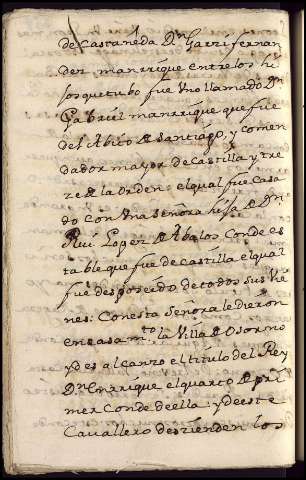 de castañeda Dn Garzi fernan
dez manrrique entre los hi
jos que tubo fue Vno llamado Dn
Gabriel manrrique que fue
del Abito de Santiago, y comen
dador mayor de Castilla y tre
ze de la Orden. el qual fue Casa
do con Vna Señora hija de Dn
Rui Lopez de Abalos Conde es
table que fue de castilla el qual
fue desposeido de todos sus vie
nes: Con esta Señora le dieron
en casamto la Villa de Osorno
y des alcanzo el titulo del Rey
Dn Enrrique el quarto de pri
mer Conde de ella: y de este
Cavallero deszienden los